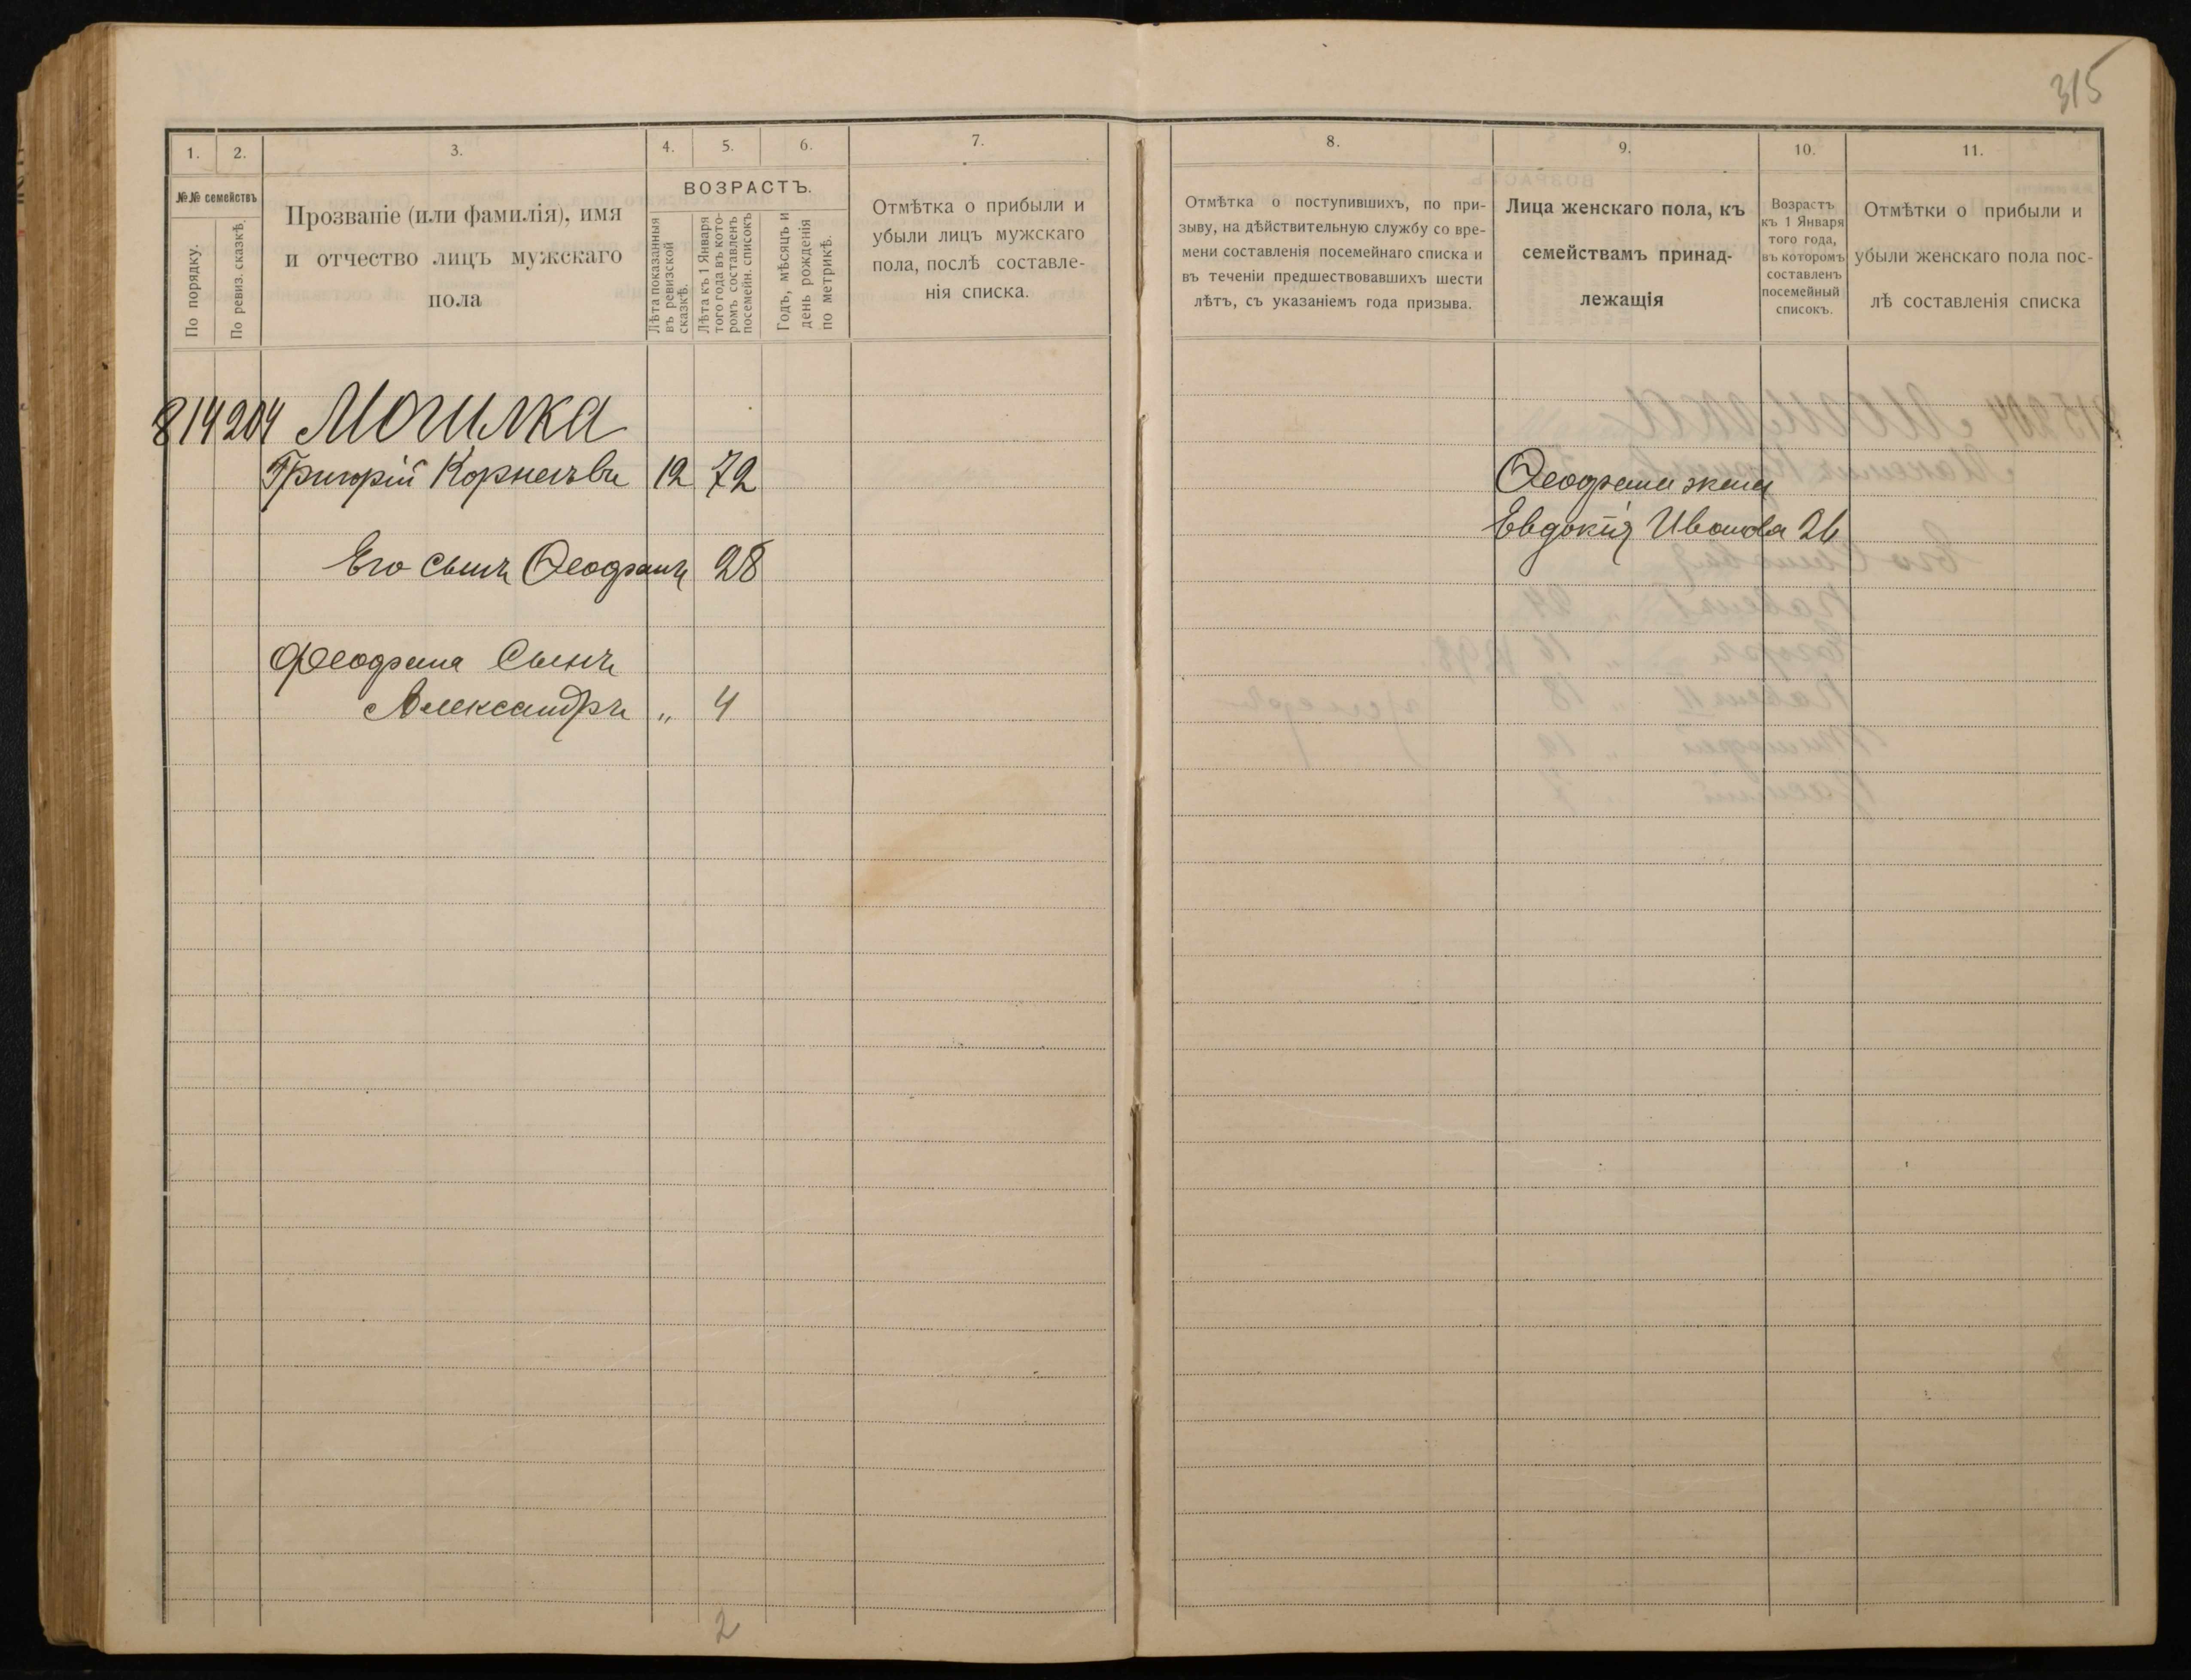 315
1. 2. 3. 4. 5. 6. 7.
№№ семействъ
По порядку.
По ревиз. сказкѣ.
Прозваніе (или фамилія), имя
и отчество лицъ мужскаго
пола
ВОЗРАСТЪ.
Лѣта показанныя
въ ревизской
сказкѣ.
Лѣта къ 1 Января
того года въ кото-
ромъ составленъ
посемейн. списокъ
Годъ, мѣсяцъ и
день рожденія
по метрикѣ.
Отмѣтка о прибыли и
убыли лицъ мужскаго
пола, послѣ составле-
нія списка.
814 204 Могилка
Григорій Корнеевъ 12 72
Его сынъ Ѳеофанъ 28
Ѳеофана Сынъ
Александръ „ 4
2
8. 9. 10. 11.
Отмѣтка о поступившихъ, по при-
зыву, на дѣйствительную службу со вре-
мени составленія посемейнаго списка и
въ теченіи предшествовавшихъ шести
лѣтъ, съ указаніемъ года призыва.
Лица женскаго пола, къ
семействамъ принад-
лежащія
Возрастъ
къ 1 Января
того года,
въ которомъ
составленъ
посемейный
списокъ.
Отмѣтки о прибыли и
убыли женскаго пола пос-
лѣ составленія списка
Ѳеофана жена
Евдокія Иванова 26